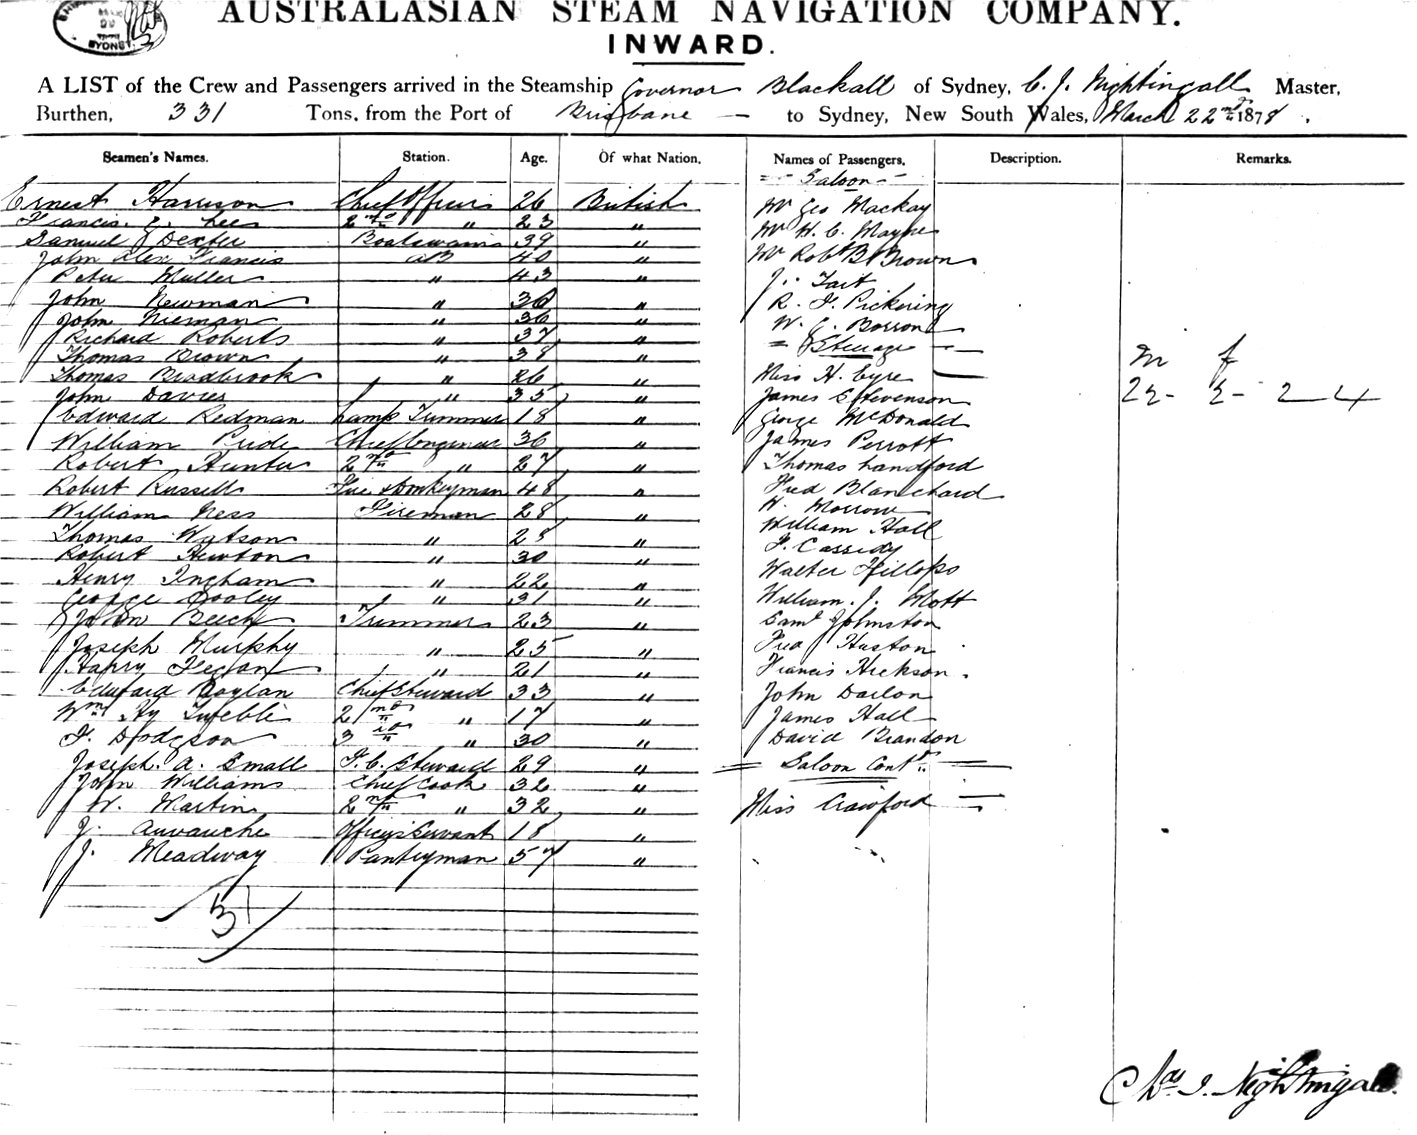 AUSTRALASIAN STEAM NAVIGATION COMPANY.
INWARD.
SYDNEY
A LIST of the Crew and Passengers arrived in the Steamship Governor Blackall of Sydney, C. J. Nightingall Master,
Burthen, 331 Tons, from the Port of Brisbane to Sydney, New South Wales, March 22nd 1878.
Seamen's Names. Station. Age. Of what Nation. Names of Passengers. Description. Remarks.
Ernest Harrison Chief Officer 26 British
Francis E. Lee 2nd " 23 "
Samuel J Dexter Boatswain 39 "
John Alex Francis AB 40 "
Peter Muller " 43 "
John Newman " 36 "
John Nieman " 36 "
Richard Roberts " 37 "
Thomas Brown " 38 "
Thomas Bradbrook " 26 "
John Davies " 35 "
Edward Redman Lamp Trimmer 18 "
William Pride Chief Engineer 36 "
Robert Hunter 2nd " 27 "
Robert Russell Donkeyman 48 "
William Ness Fireman 28 "
Thomas Watson " 28 "
Robert Hewton " 30 "
Henry Ingham " 22 "
George Dooley " 31 "
John Beech Trimmer 23 "
Joseph Murphy " 25 "
Harry " 21 "
Edward Boylan Chief Steward 33 "
Wm Hy 2nd " 17 "
J. Dodgson 3rd " 30 "
Joseph. A. Small F. C. Steward 29 "
John Williams Chief Cook 32 "
W. Martin 2nd " 32 "
J. Officers Servant 18 "
J. Meadway Pantryman 57 "
31
Saloon
Mr Geo Mackay
Mr H. C. Mayne
Mr Robt B Brown
J. Tait
R. J. Pickering
W. C. Borron
Steerage
Miss H. Eyre
James C Stevenson
George McDonald
James Perrott
Thomas Landford
Fred Blanchard
W. Morrow
William Hall
J. Cassidy
Walter Fillops
William. J. Mott
Saml Johnston
Fred Huston
Francis Hickson.
John Darlon
James Hall
David Brandon
Saloon Contd
Miss Crawford
m f
22 - 2 - 24
Chas J. Nightingall.